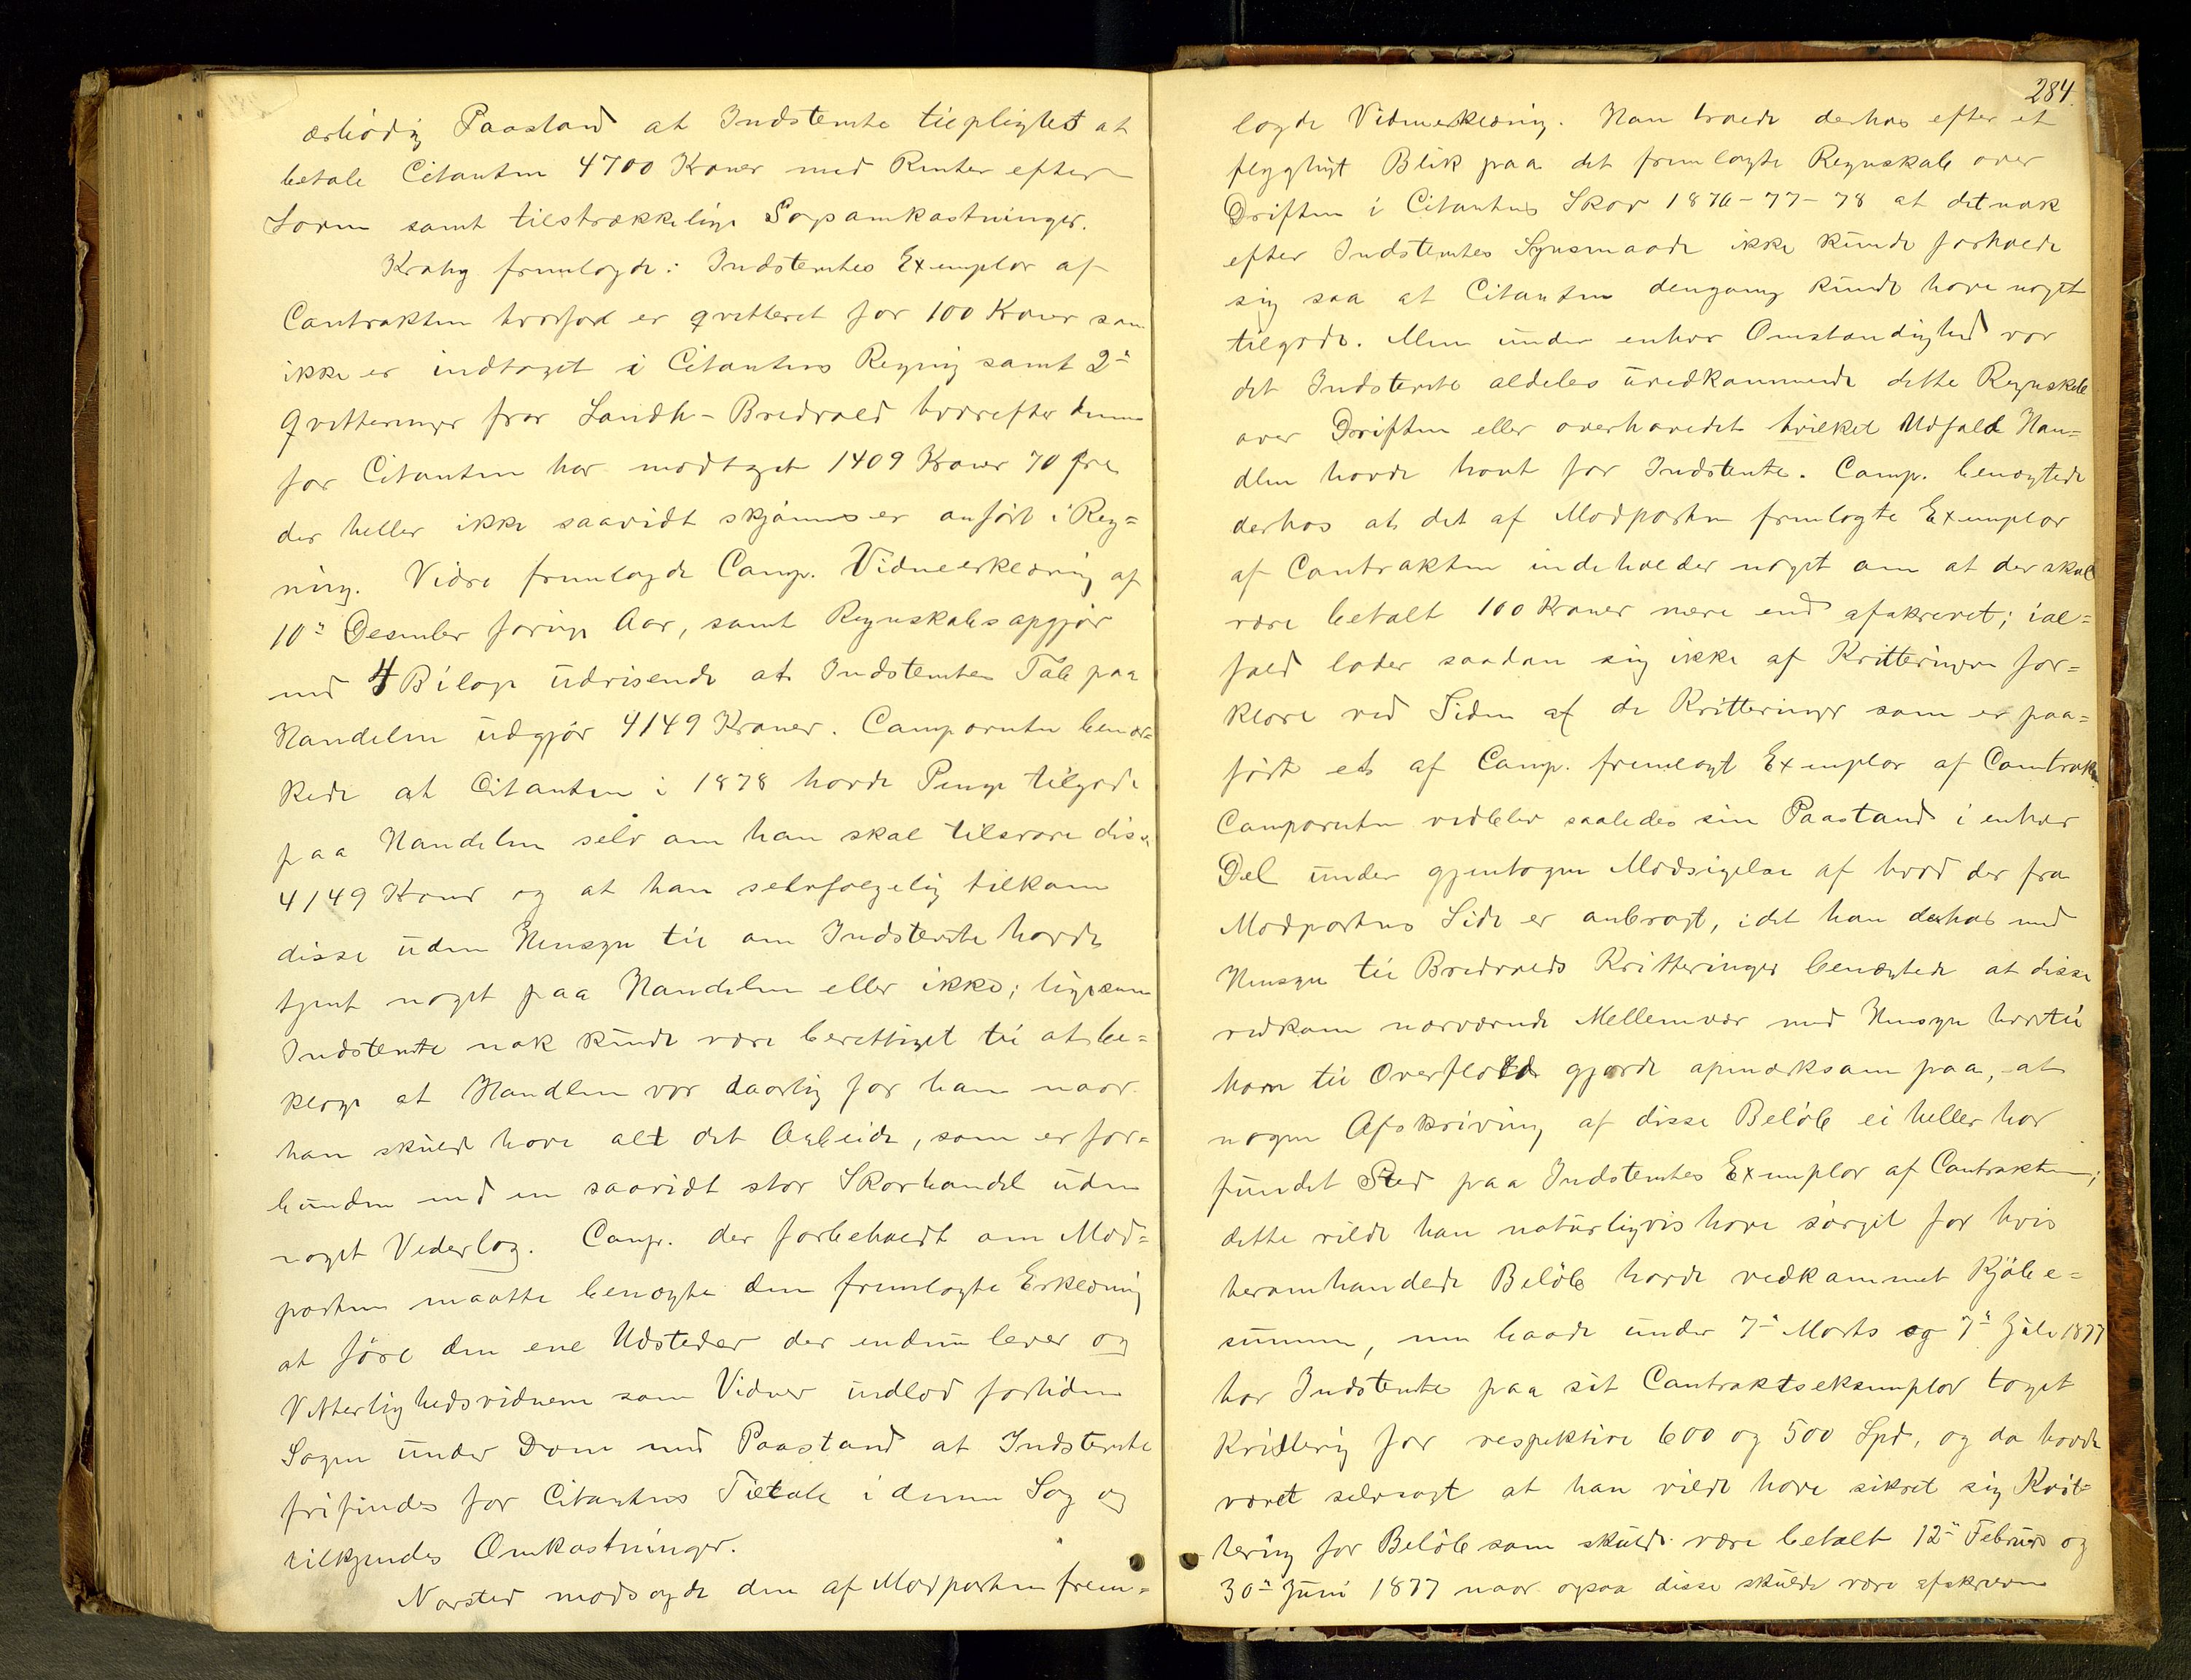 ærbødig Paastand at Indstemte tilpligtes at
betale Citanten 4700 Kroner med Renter efter
Loven samt tilstrækkelige Sagsomkostninger.
Krahg fremlagde: Indstemtes Exemplar af
Contrakten hvorfor er qvitteret for 100 Kroner som
ikke er indtaget i Citantens Regning samt 2de
Qvitteringer fra Landh- Bredvold hvorefter denne
for Citanten har modtaget 1409 Kroner 70 Øre
der heller ikke saavidt skjønnes er anført i Reg=
ning. Videre fremlagde Comp. Vidneerklæring af
10de Desember forrige Aar, samt Regnskabsopgjør
med 4 Bilage udvisende at Indstemtes Tab paa
Handelen udgjør 4149 Kroner. Comparenten bemær=
kede at Citanten i 1878 havde Penge tilgode
paa Handelen selv om han skal tilsvare disse
4149 Kroner og at han selvfølgelig tilkom
disse uden Hensyn til om Indstemte havde
tjent noget paa Handelen eller ikke; ligesom
Indstemte nok kunde være berettiget til at be=
klage at Handlen var daarlig for ham naar
han skulde have alt det Arbeide, som er for=
bunden med en saavidt stor Skovhandel uden
noget Vederlag. Comp. der forbeholdt om Mod=
parten maatte benægte den fremlagte Erklæring
at føre den ene Udsteder der endnu lever og
Vitterlighedsvidnerne som Vidner indlod fortiden
Sagen under Dom med Paastand at Indstemte
frifindes for Citantens Tiltale i denne Sag og
tilkjendes Omkostninger.
Narsted modsagde den af Modparten frem=
284.
lagde Vidneerklæring. Han troede derhos efter et
flygtigt Blik paa det fremlagte Regnskab over
Driften i Citantens Skov 1876-77-78 at det nok
efter Indstemtes Synsmaade ikke kunde forholde
sig saa at Citanten dengang kunde have noget
tilgode. Men under enhver Omstændighed var
det Indstemte aldeles uvedkommende dette Regnskab
over Driften eller overhovedet hvilket Udfald Han=
dlen havde havt for Indstemte. Comp. benægtede
derhos at det af Modparten fremlagte Exemplar
af Contrakten indeholder noget om at der skal
være betalt 100 Kroner mere end afskrevet; ial=
fald lader saadan sig ikke af Kvitteringen for=
klare ved Siden af de Kvitteringer som er paa=
ført et af Comp. fremlagt Exemplar af Contrakten
Comparenten vedblev saaledes sin Paastand i enhver
Del under gjentagen Modsigelse af hvad der fra
Modpartens Side er anbragt, idet han derhos med
Hensyn til Bredvolds Kvitteringer benægtede at disse
vedkom nærværende Mellemvær med Hensyn hvortil
han til Overflod gjorde opmærksom paa, at
nogen Afskrivning af disse Beløb ei heller har
fundet Sted paa Indstemtes Exemplar af Contrakten;
dette vilde han naturligvis have sørget for hvis
heromhandlede Beløb havde vedkommet Kjøbe=
summen, men baade under 7de Marts og 7de Juli 1877
har Indstemte paa sit Contraktseksemplar taget
Kvittering for respektive 600 og 500 Spd, og da havde
været selvsagt at han vilde have sikret sig Kvit=
tering for Beløb som skulde være betalt 12te Februar og
30te Juni 1877 naar ogsaa disse skulde være afskreven